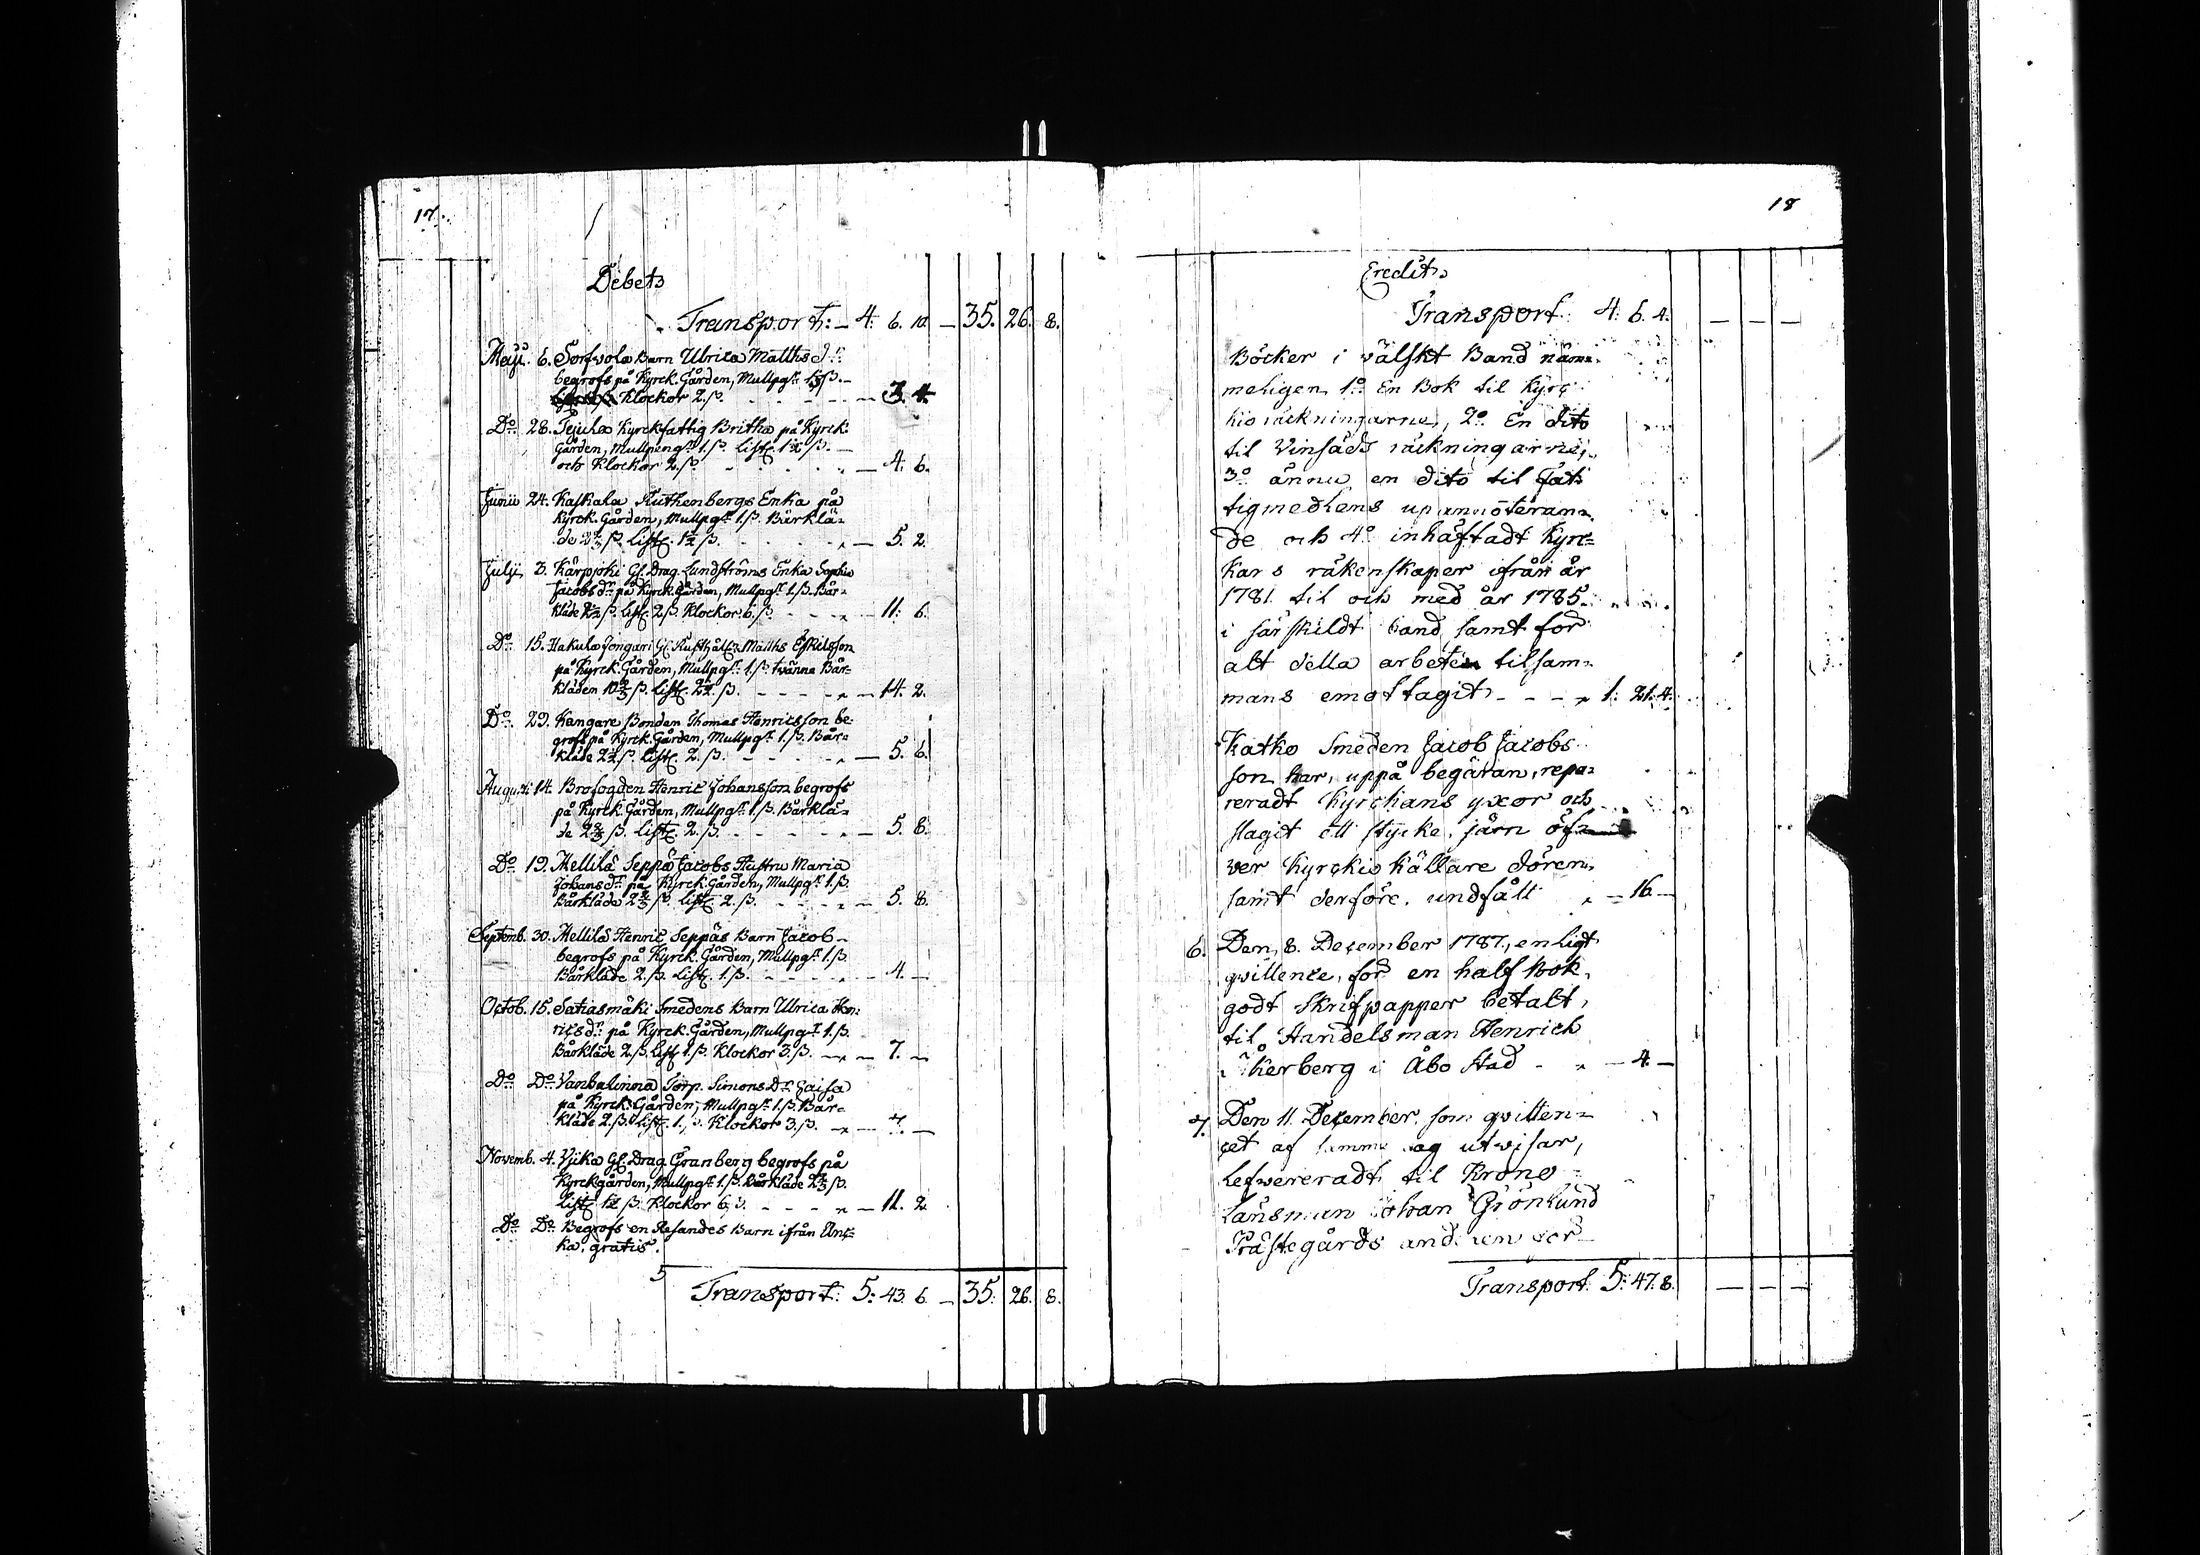 17.
Debet
Transport: - 4. 6. 10. - 35. 26. 8.
Maji. 6. Sorfwola Barn Ulrica Matths dr.
begrofs på Kyrck. Gården, Mullpgr 1 1/3 ß.
Klockor 2. ß. - - - - - 3. 4.
Do. 28. Jejula Kyrckfattig Britha på Kyrck:
Gården, Mullpengr 1. ß. List. 1 1/2 ß.
och Klockor 2. ß. - - - - „ - 4. 6.
Junii 24. Kaskala Ruthenbergs Enka på
Kyrck. Gården, Mullpgr 1. ß. Bårklä=
de 2 2/3 ß. List. 1 1/2 ß. - - - - „ - 5. 2.
Julji 3. Kärpjoki Gl. Drag. Lundströms Enka Sophia
Jacobs dr. på Kyrck. Gården, Mullpgr 1. ß. Bår=
kläde 2 1/2 ß. List. 2. ß. Klockor. 6. ß. - - „ - 11. 6.
Do. 15. Hakula Jongari Gl. Rusthålln Matths Eskilsson
på Kyrck. Gården, Mullpgr 1. ß. tvänna Bår=
kläden 10 2/3 ß. List. 2 1/2 ß. - - - - „ - 14. 2.
Do. 29. Kangare Bonden Thomas Henricsson be=
grofs på Kyrck. Gården, Mullpgr 1. ß. Bår=
kläde 2 1/2 ß. List. 2. ß. - - - - „ - 5. 6.
Augusti 14. Brofogden Henric Johansson begrofs
på Kyrck. Gården, Mullpgr 1. ß. Bårklä=
de 2 2/3 ß. List. 2. ß. - - - - „ - 5. 8.
Do. 19. Mellilä Seppä Jacobs Hustru Maria
Johans dr. på Kyrck. Gården, Mullpgr 1. ß.
Bårkläde 2 2/3 ß. List. 2. ß. - - - - „ - 5. 8.
Septemb. 30. Mellilä Henric Seppäs Barn Jacob
begrofs på Kyrck. Gården, Mullpgr 1. ß.
Bårkläde 2. ß. List. 1. ß. - - - - „ - 4. -
Octob. 15. Satiasmäki Smedens Barn Ulrica Hen=
rics dr. på Kyrck. Gården, Mullpgr 1. ß.
Bårkläde 2. ß. List. 1. ß. Klockor 3. ß. - „ - 7. -
Do. Do. Vanhalinna Torp. Simons Dr. Caisa
på Kyrck. Gården, Mullpgr 1. ß. Bår=
kläde 2. ß. List. 1. ß. Klockor 3. ß. - „ - 7. -
Novemb. 4. Vjika Gl. Drag. Granberg begrofs på
Kyrckgården, Mullpgr 1. ß. Bårkläde 2 2/3 ß.
List. 1 1/2 ß. Klockor 6. ß. - - - - „ - 11. 2.
Do. Do. Begrofs en Resandes Barn ifrån
ka. gratis.
5
Transport: 5: 43. 6. - 35. 26. 8.
18
Credit
Transport: 4. 6. 4. - - -
Böcker i välskt Band näm=
meligen 1o. En Bok til Kyrc=
kio räckningarna, 2o. En dito
til Vinsäds räckningarne,
3o. ännu en dito til Fat=
tigmedlens upannoteran=
de och 4o. inhäftadt Kyrc=
kans räkenskaper ifrån år
1781. til och med år 1785.
i särskildt band, samt för
alt detta arbete tilsam=
mans emottagit - - - „ 1: 21. 4.
Katko Smeden Jacob Jacobs=
son har, uppå begäran, repa=
reradt Kyrckans yxor och
slagit ett stycke järn öf=
ver Kyrckio Källare dören,
samt derföre undfått „ - 16. -
6. Den 8. December 1787., enligt
qvittence, för en half Bok
godt Skrifpapper betalt
til Handelsman Henrich
Åkerberg i Åbo Stad - „ - 4. -
7. Den 11. December, som qvitten=
cet af samma dag utvisar,
lefvereradt til Krono
Länsman Johan Grönlund
Prästegårds
Transport: 5: 47. 8. - - - -